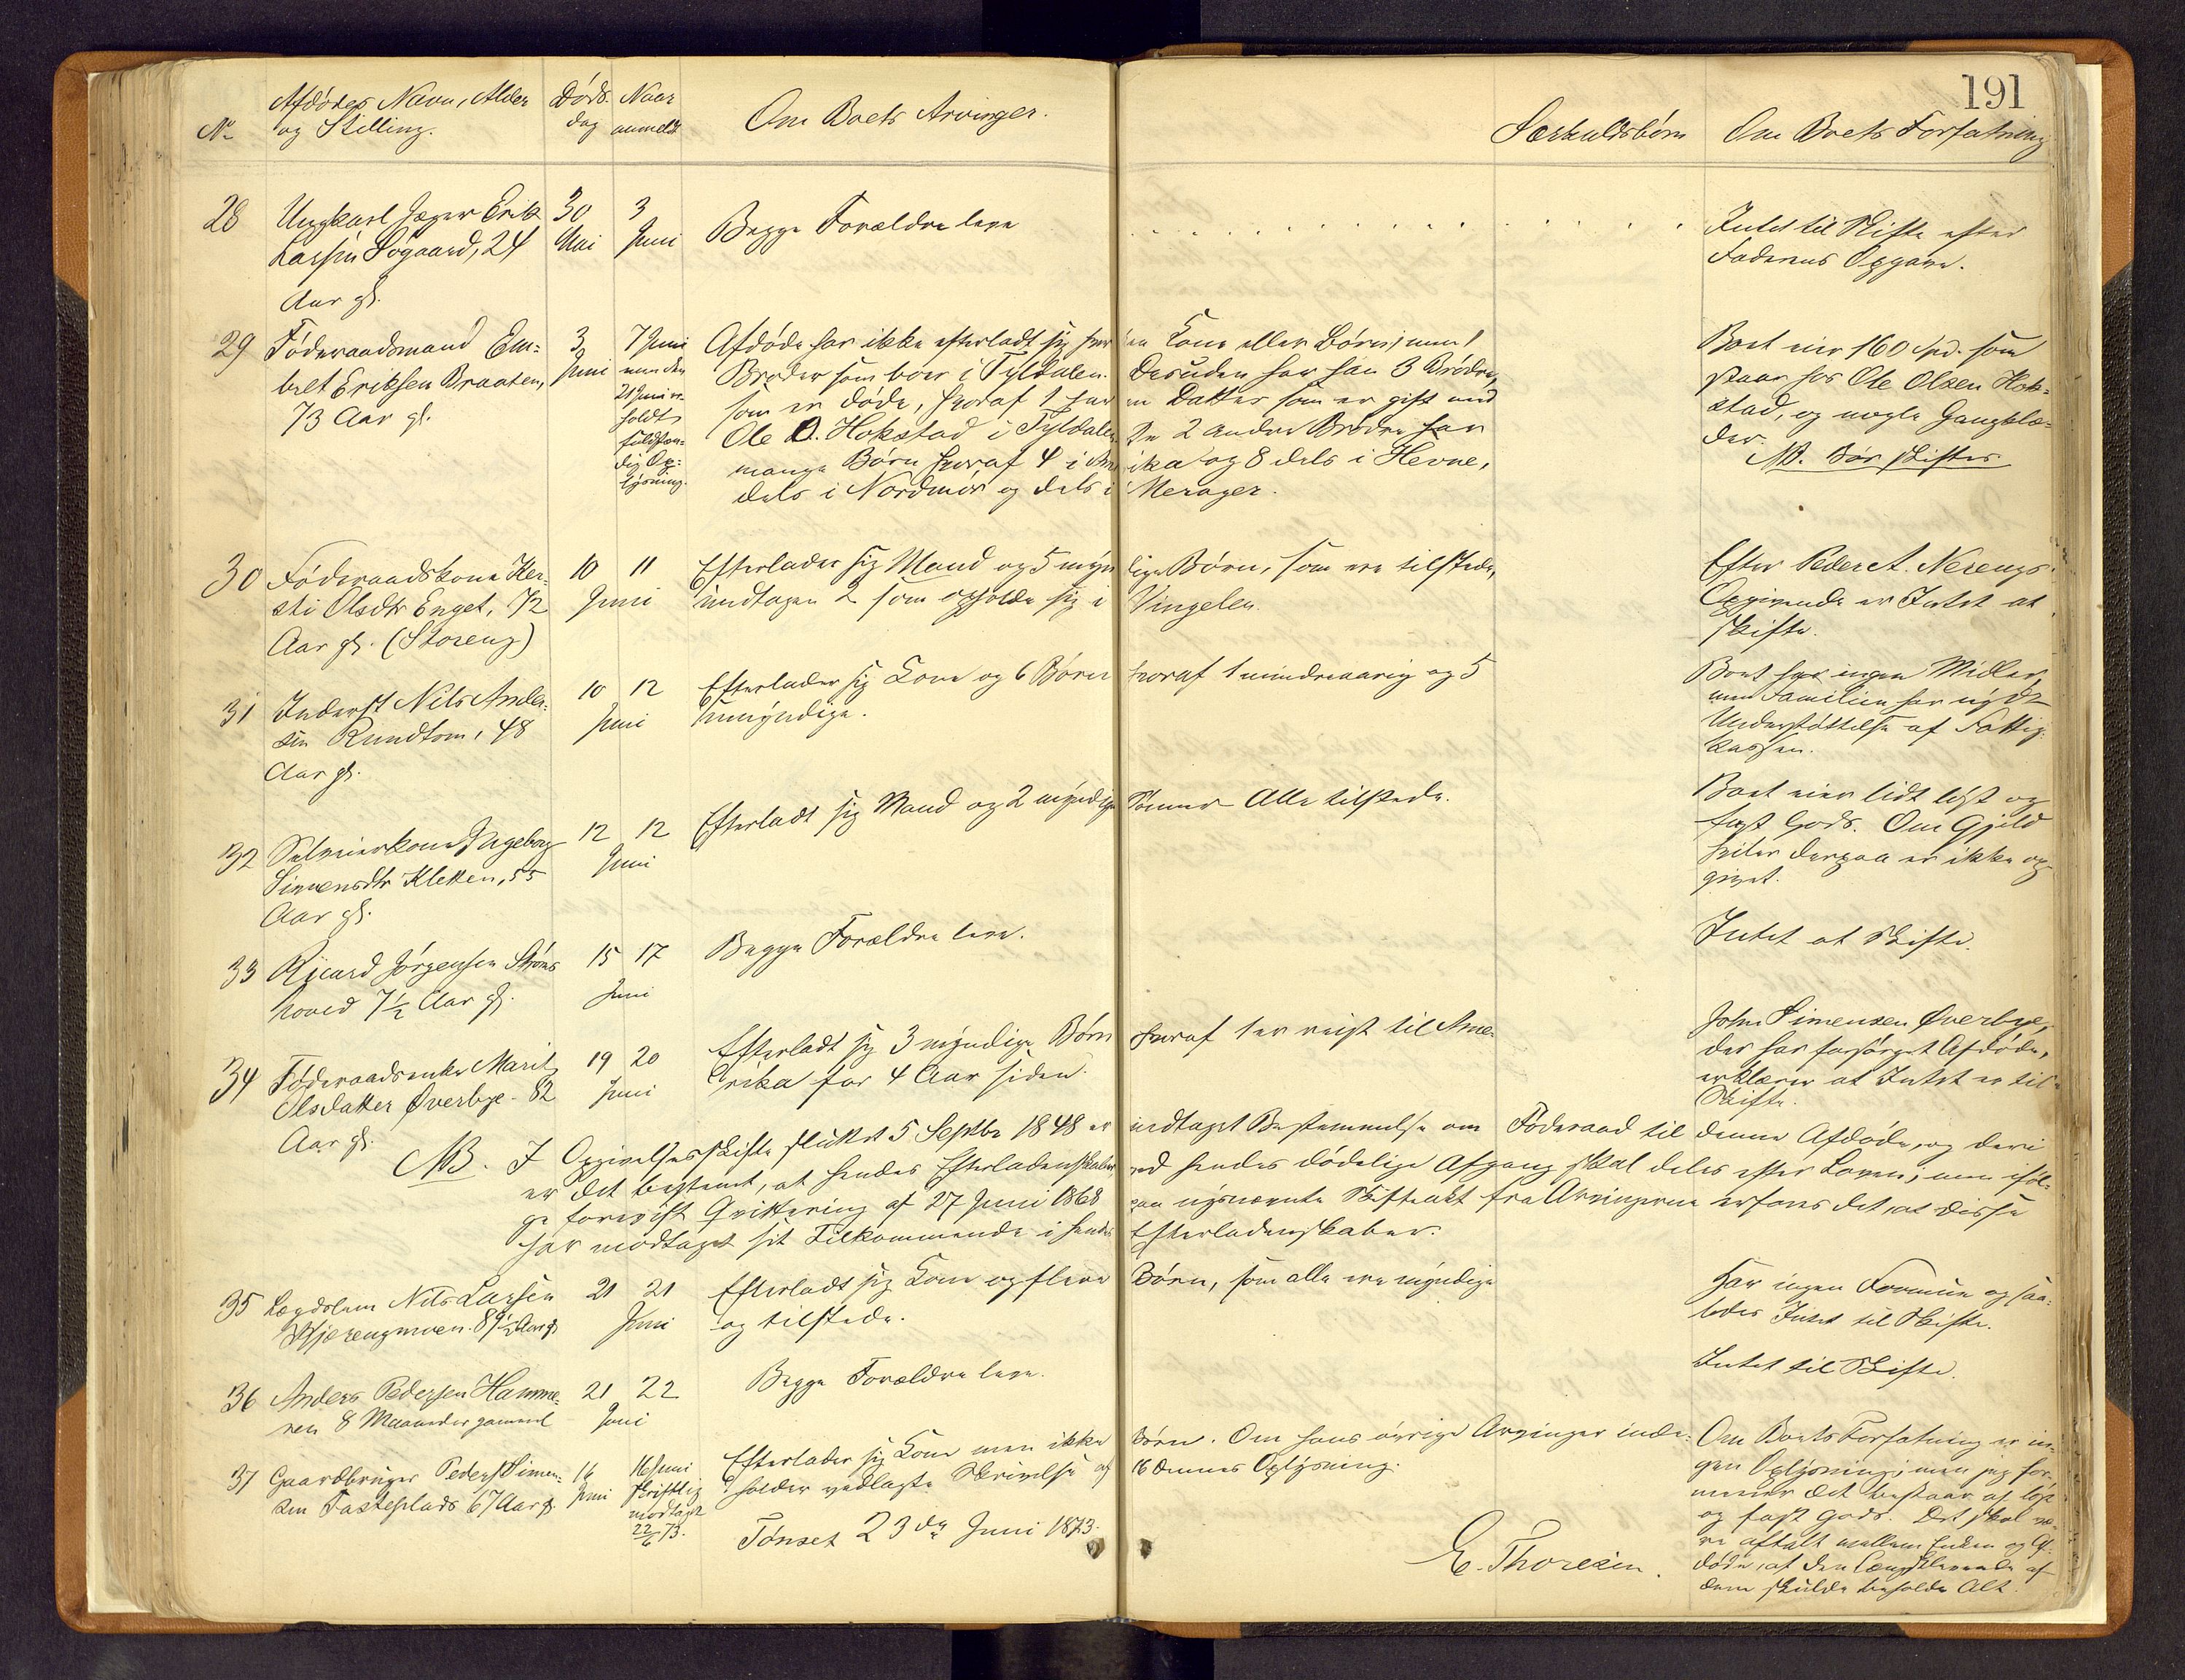 191
No Afdødes Navn, Alder og Stilling. Døds- dag Naar anmeldt Om Boets Arvinger. Særkuldsbörn Om Boets Forfatning
28 Ungkarl Jæger Erik 30 3
Larsen Søgaard, 24 Mai Juni Begge Forældre leve
Aar gl.
Intet til Skifte efter
Faderens Opgave.
29 Föderaadsmand Em-
bret Eriksen Braaten,
73 Aar gl.
3 Juni
7 Juni
men den
21 Juni er-
holdt
fuldstæn-
dig Op-
lysning.
Afdöde har ikke efterladt sig hverken Kone eller Börn; men 1
Broder som boer i Tyldalen. Desuden har han 3 Brödre,
som er döde, hvoraf 1 har en Datter som er gift med
Ole O. Hokstad i Tyldalen. De 2 andre Brödre har
mange Börn hvoraf 4 i Amerika og 8 dels i Hevne,
dels i Nordmör og dels i Merager.
Boet eier 160 Spd. som
staar hos Ole Olsen Hok-
stad, og nogle Gangklæ-
der.
NB. Bör skiftes
30 Föderaadskone Ker-
sti Olsdtr Enget, 72
Aar gl. (Storeng)
10 11
Juni
Efterlader sig Mand og 5 myndige Börn, som ere tilstede,
undtagen 2 som opholde sig i Vingelen.
Efter Peder A. Nerengs
Opgivende er Intet at
skifte.
31 Inderst Nils Ander-
sen Rundtom, 48
Aar gl.
10 12
Juni
Efterlader sig Kone og 6 Börn hvoraf 1 mindreaarig og 5
umyndige.
Boet har ingen Midler,
men Familien har nydt
Understöttelse af Fattig-
kassen.
32 Selveierkone Ingeborg
Simensdtr Kletten, 55
Aar gl.
12 12
Juni
Efterladt sig Mand og 2 myndige Sönner Alle tilstede.
Boet eier lidt löst og
fast Gods. Om Gjeld
hviler derpaa er ikke op-
givet.
33 Ricard Jörgensen Ströms-
hoved 7½ Aar gl.
15 17
Juni
Begge Forældre leve.
Intet at Skifte.
34 Föderaadsenke Marit
Olsdatter Øverbye 82
Aar gl.
19 20
Juni
Efterladt sig 3 myndige Börn hvoraf 1 er reist til Ame-
rika for 4 Aar siden.
John Simensen Øverbye,
der har forsörget Afdöde,
erklærer at Intet er til
Skifte.
NB. I Opgivelsesskifte sluttet 5 Septbr 1848 er indtaget Bestemmelse om Föderaad til denne Afdöde, og deri
er det bestemt, at hendes Efterladenskaber ved hendes dödelige Afgang skal deles efter Loven; men iföl-
ge forevist Qvittering af 27 Juni 1868 paa nysnævnte Skifteakt fra Arvingerne erfares det, at disse
har modtaget sit Tilkommende i hendes Efterladenskaber.
35 Lægdslem Nils Larsen
Hjerengmoen 89½ Aar gl
21 21
Juni
Efterladt sig Kone og flere Börn, som alle ere myndige
og tilstede.
Har ingen Formue og saa-
ledes Intet til Skifte.
36 Anders Pedersen Hamme-
ren 8 Maaneder gammel
21 22
Juni
Begge Forældre leve.
Intet til Skifte.
37 Gaardbruger Peder Simen-
sen Fasteplads 67 Aar gl
16
Juni
16 Juni
skriftlig
modtaget
22/6 73.
Efterlader sig Kone men ikke Börn. Om hans övrige Arvinger inde-
holder vedlagte Skrivelse af 16 dennes Oplysning.
Om Boets Forfatning er in-
gen Oplysning; men jeg for-
mener det bestaar af löst
og fast Gods. Det skal væ-
re aftalt mellem Enken og Af-
döde, at den Længstlevende af
dem skulde beholde Alt.
Tönset 23de Juni 1873.
E. Thoresen.